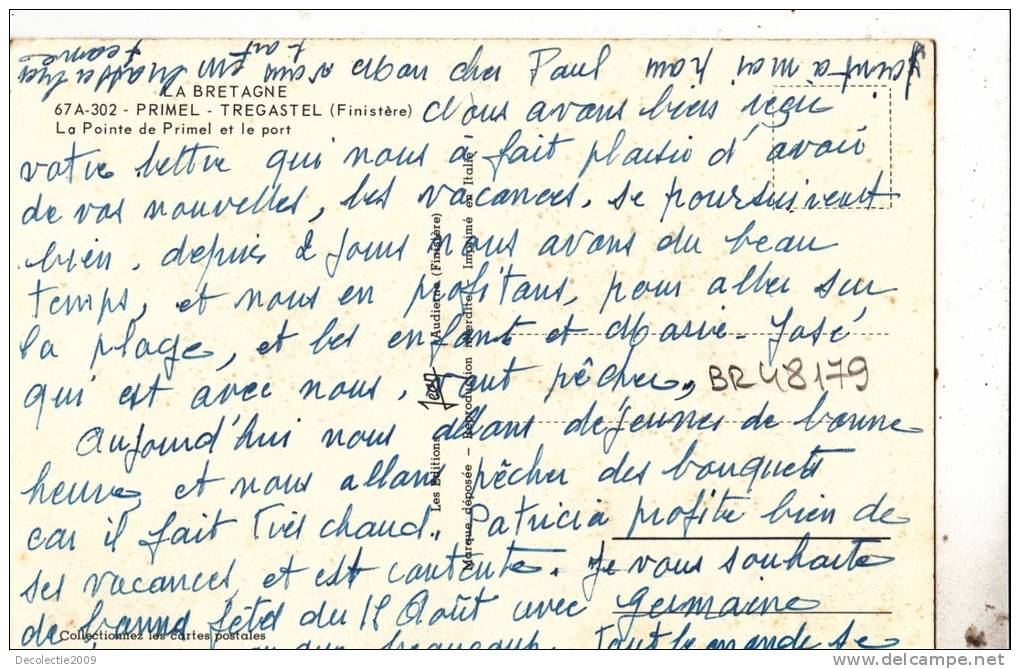 Mon cher Paul
LA BRETAGNE
67A-302 - PRIMEL - TREGASTEL (Finistère)
La Pointe de Primel et le port
Nous avons bien reçu
votre lettre qui nous à fait plaisir d'avoir
de vos nouvelles, les vacances se poursuivent
bien, depuis 2 jours nous avons du beau
temps, et nous en profitons, pour aller sur
la plage, et les enfant et Marie-José
qui est avec nous, vont pêcher,
BR48179
Aujourd'hui nous allons déjeuner de bonne
heure et nous allons pêcher des bouquets
car il fait très chaud. Patricia profite bien de
ses vacances, et est contente. Je vous souhaite
de bonne fête du 15 Août avec Germaine
beaucoup. Tout le monde se
Les Editions Jean Audierne (Finistère)
Marque déposée — Reproduction interdite - Imprimé en Italie
Collectionnez les cartes postales
Decolectie2009
delcampe.net